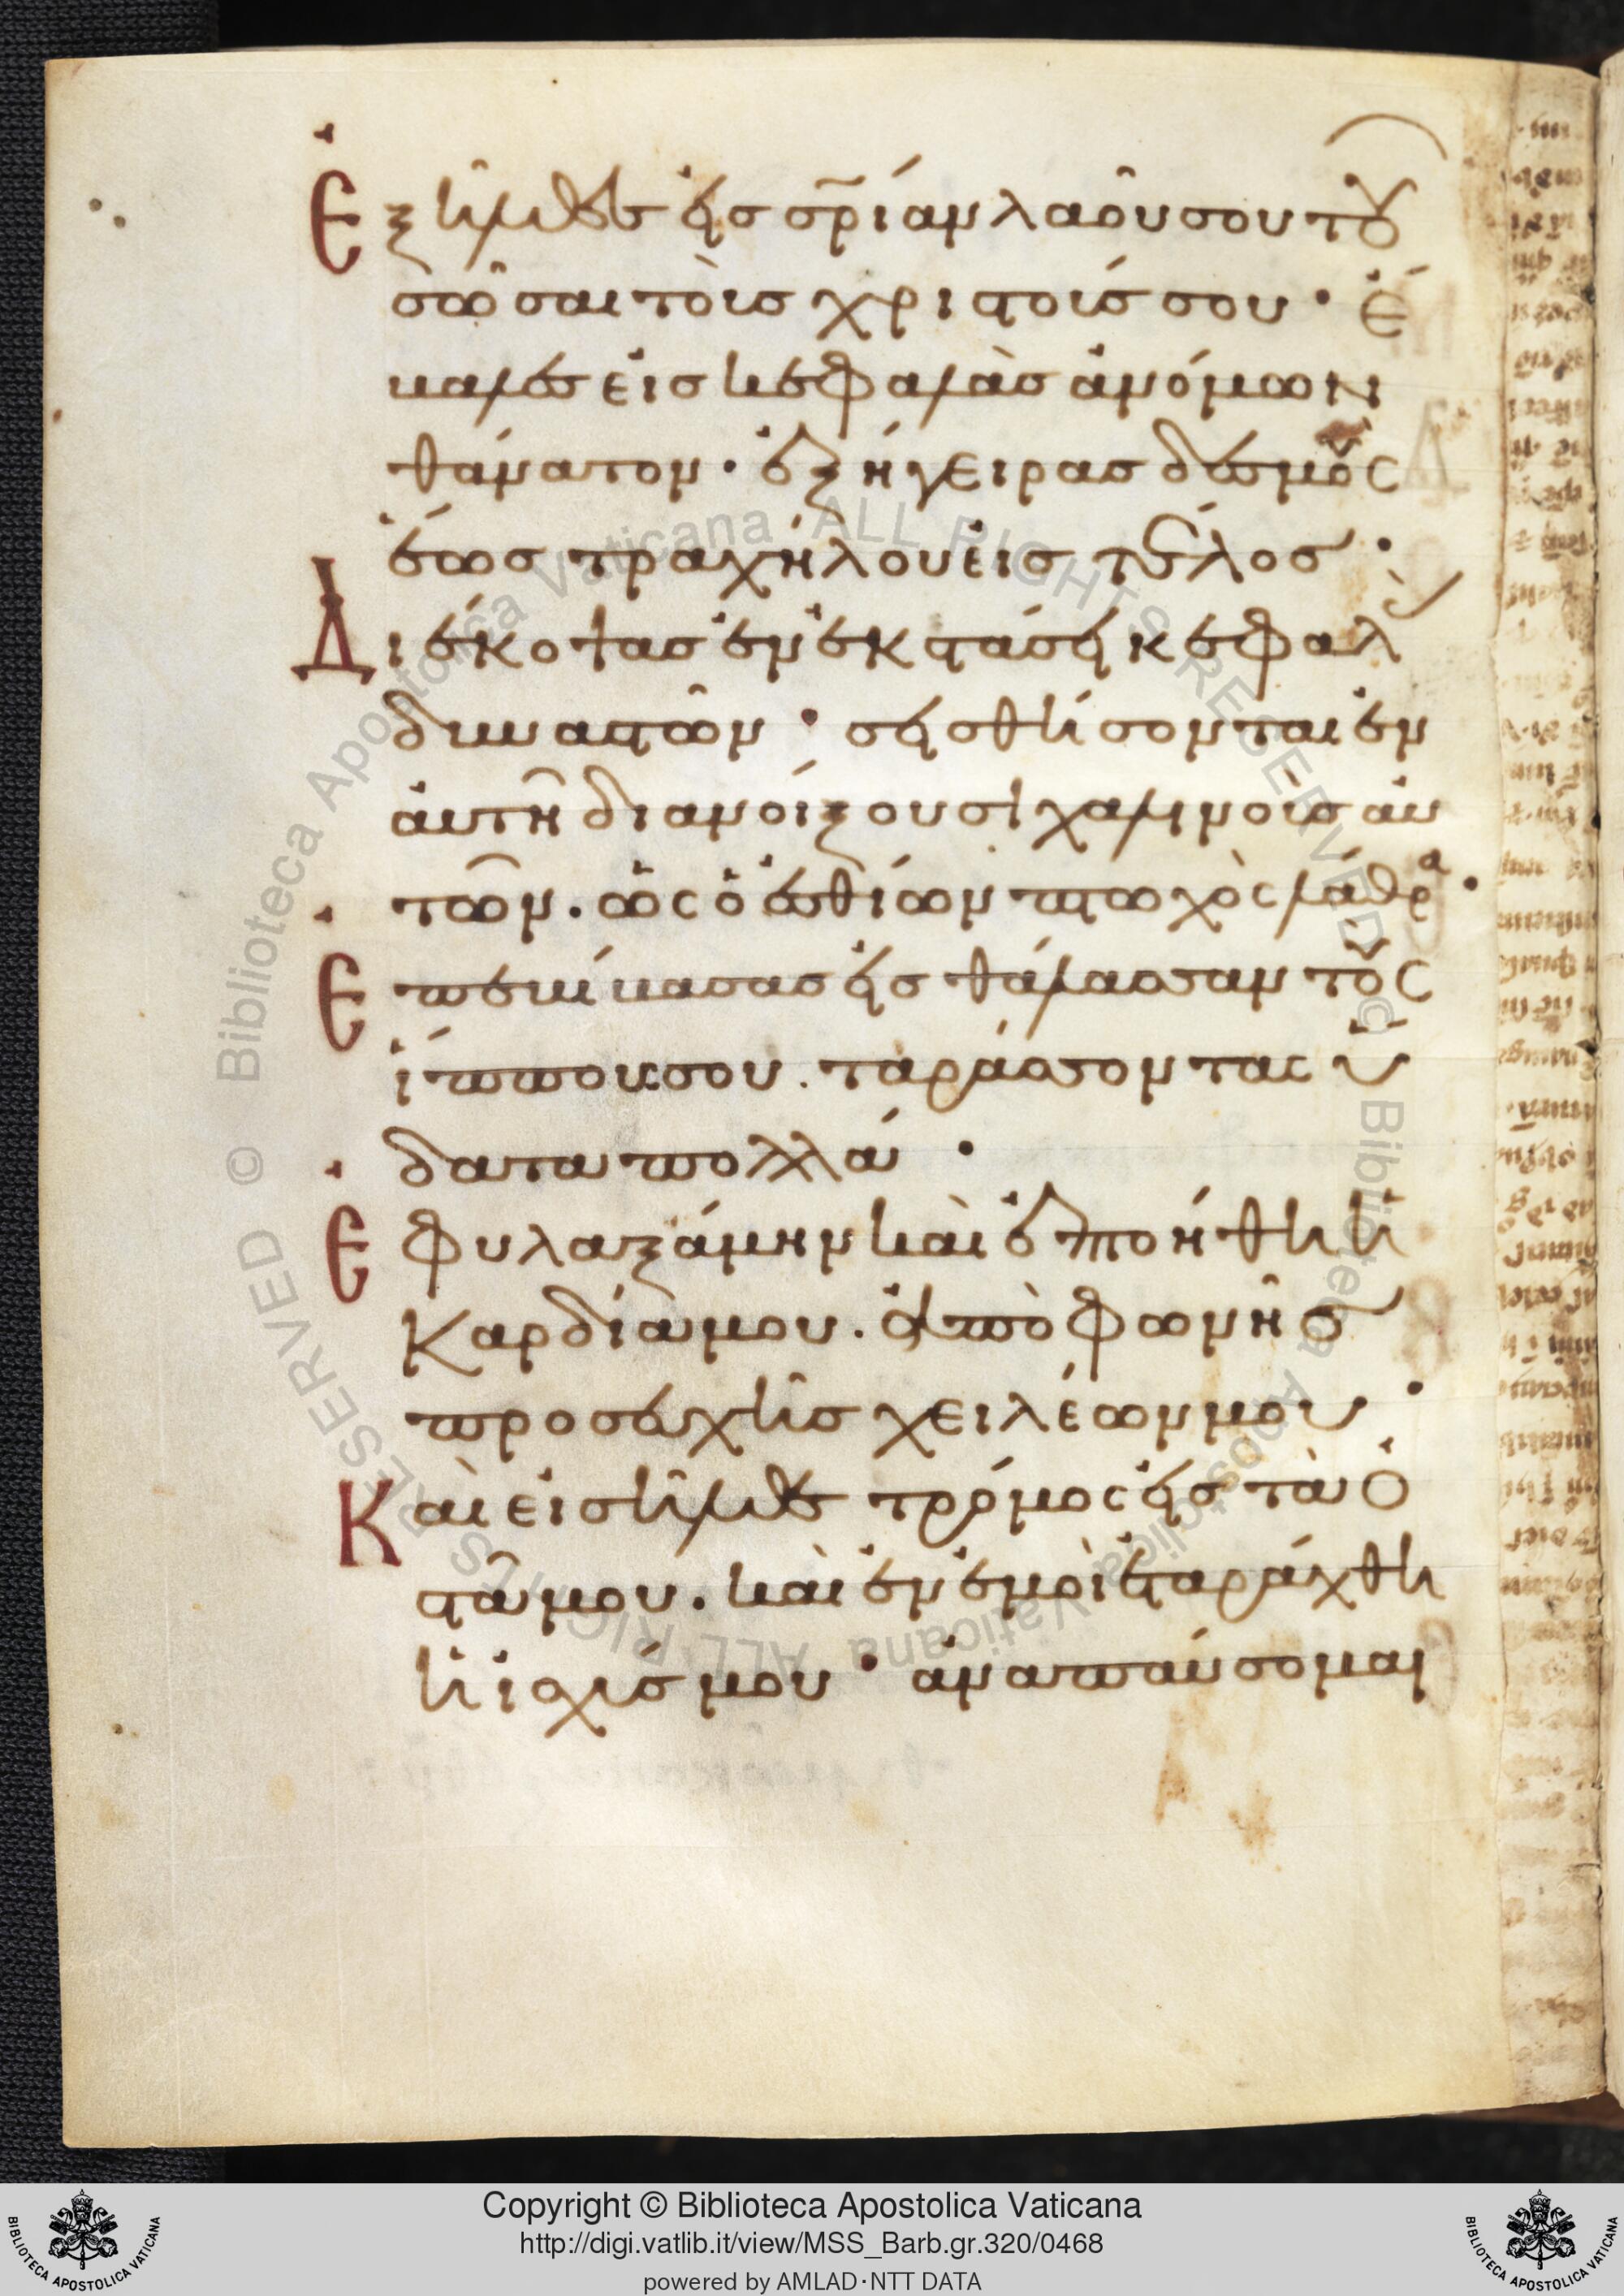 Ἐξῆλθες εἰς σρ̅ίαν λαοῦ σου τοῦ
σῶσαι τοὺς χριστούς σου · ἔ
βαλες εἰς κεφαλὰς ἀνόμων
θάνατον · ἐξήγειρας δεσμοὺς
ἕως τραχήλου εἰς τέλος ·
Διέκοψας ἐν ἐκστάσει κεφαλὰς
δυναστῶν · σεισθήσονται ἐν
αὐτῇ διανοίξουσι χαλινοὺς αὐ
τῶν . ὡς ὁ ἐσθίων πτωχὸς λάθρα ·
Ἐπεβίβασας εἰς θάλασσαν τοὺς
ἵππους σου . ταράσσοντας ὕ
δατα πολλά ·
Ἐφυλαξάμην καὶ ἐπτοήθη ἡ
καρδία μου . ἀπὸ φωνῆς
προσευχῆς χειλέων μου ·
Καὶ εἰσῆλθε τρόμος εἰς τὰ ὀ
στᾶ μου . καὶ ἐν ἐμοὶ ἐταράχθη
ἡ ἰσχύς μου · ἀναπαύσομαι
Copyright © Biblioteca Apostolica Vaticana
http://digi.vatlib.it/view/MSS_Barb.gr.320/0468
powered by AMLAD·NTT DATA